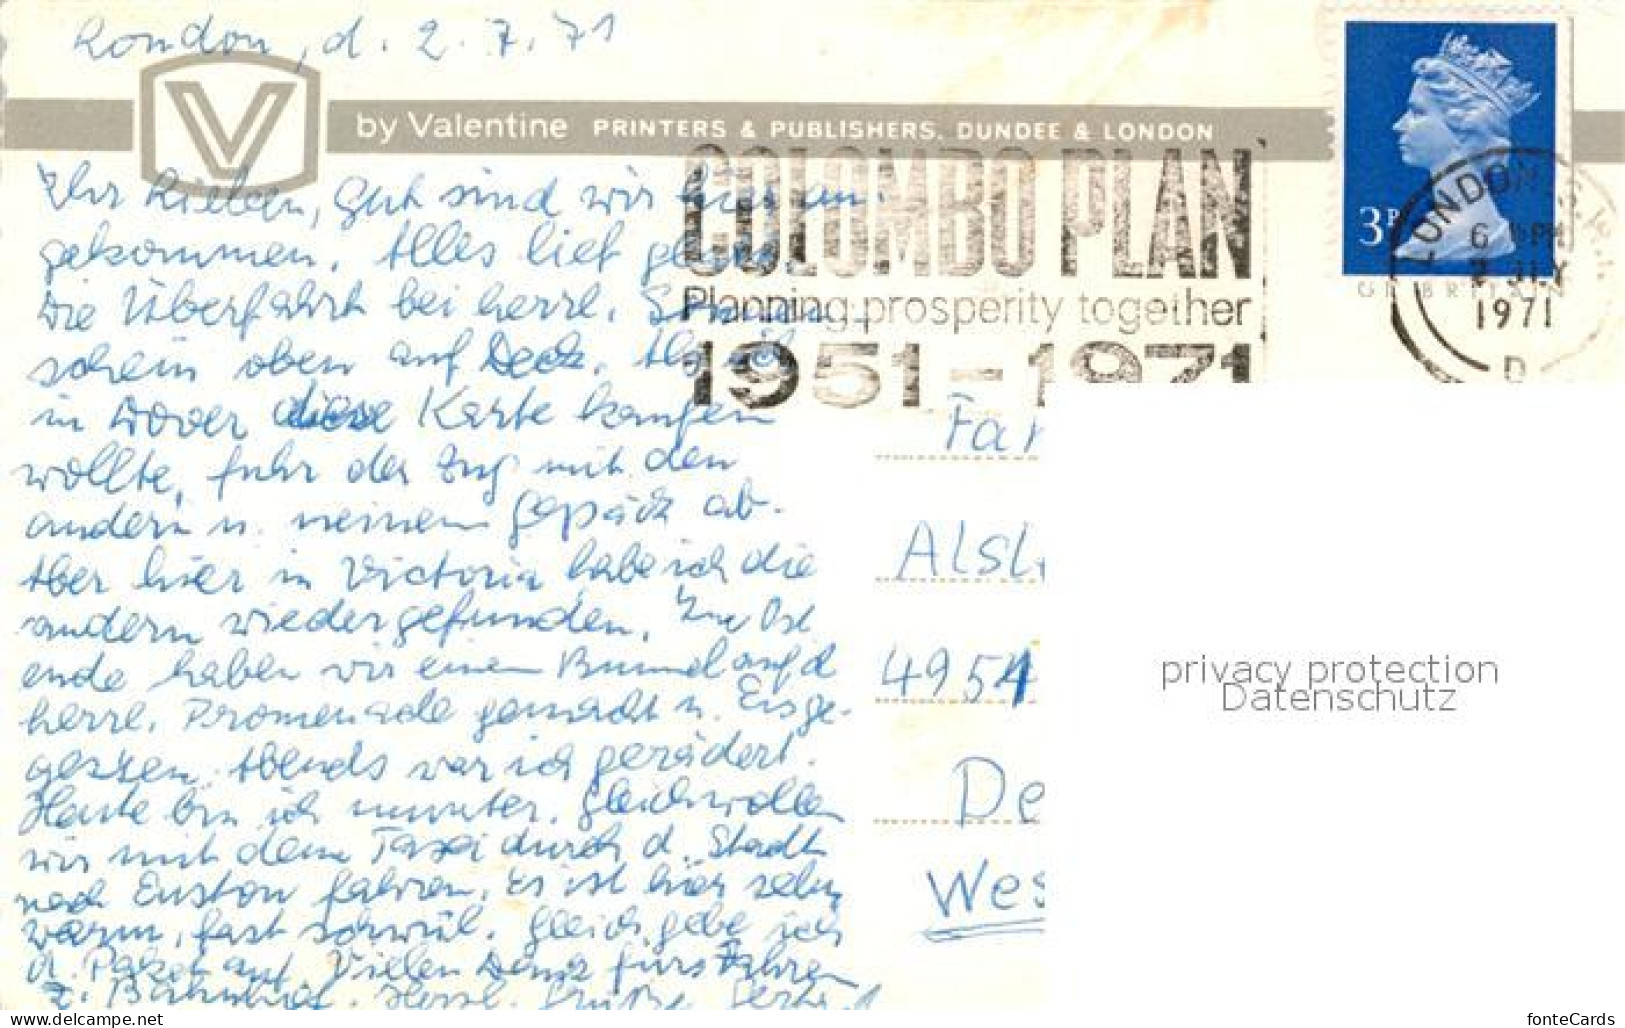 London, d. 2.7.71
V
by Valentine PRINTERS & PUBLISHERS. DUNDEE & LONDON
Ihr Lieben, gut sind wir hier an-
gekommen. Alles lief
Die Überfahrt bei herrl. Sonnen-
schein oben auf Deck. Als ich
in Dover diese Karte kaufen
wollte, fuhr der Zug mit den
andern u. meinem Gepäck ab.
Aber hier in Victoria habe ich die
andern wiedergefunden. In Ost
ende haben wir einen Bummel auf d
herrl. Promenade gemacht u. Eis ge-
gessen. Abends war ich gerädert.
Heute bin ich munter. Gleich wollen
wir mit dem Taxi durch d. Stadt
nach Euston fahren. Es ist hier sehr
warm, fast schwül. Gleich gebe ich
d. Paket auf. Vielen Dank fürs Fahren
z. Bahnhof. Herzl. Grüße
COLOMBO PLAN
Planning prosperity together
1951-1971
3P
LONDON
6
1971
D
GT BRITAIN
Fa
Alsl
4954
De
Wes
privacy protection
Datenschutz
www.delcampe.net
fonteCards